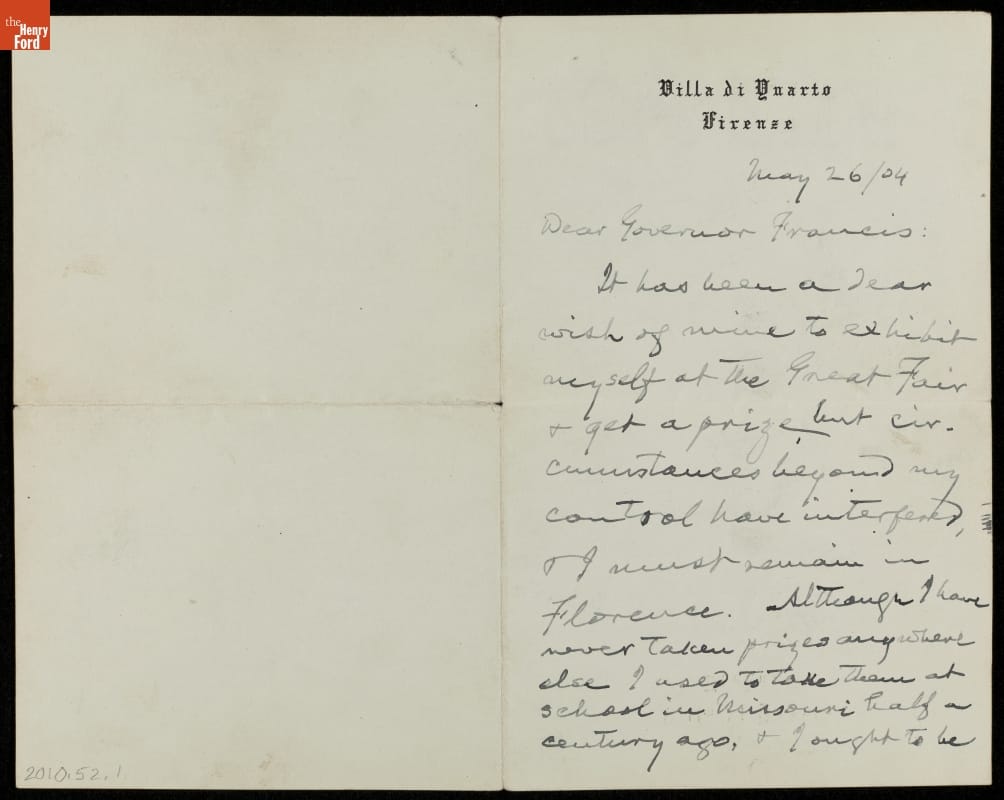 the
Henry
Ford
Villa di Quarto
Firenze
May 26/04
Dear Governor Francis:
It has been a dear
wish of mine to exhibit
myself at the Great Fair
& get a prize, but cir-
cumstances beyond my
control have interfered,
& I must remain in
Florence. Although I have
never taken prizes anywhere
else I used to take them at
school in Missouri half a
century ago, & I ought to be
2010.52.1